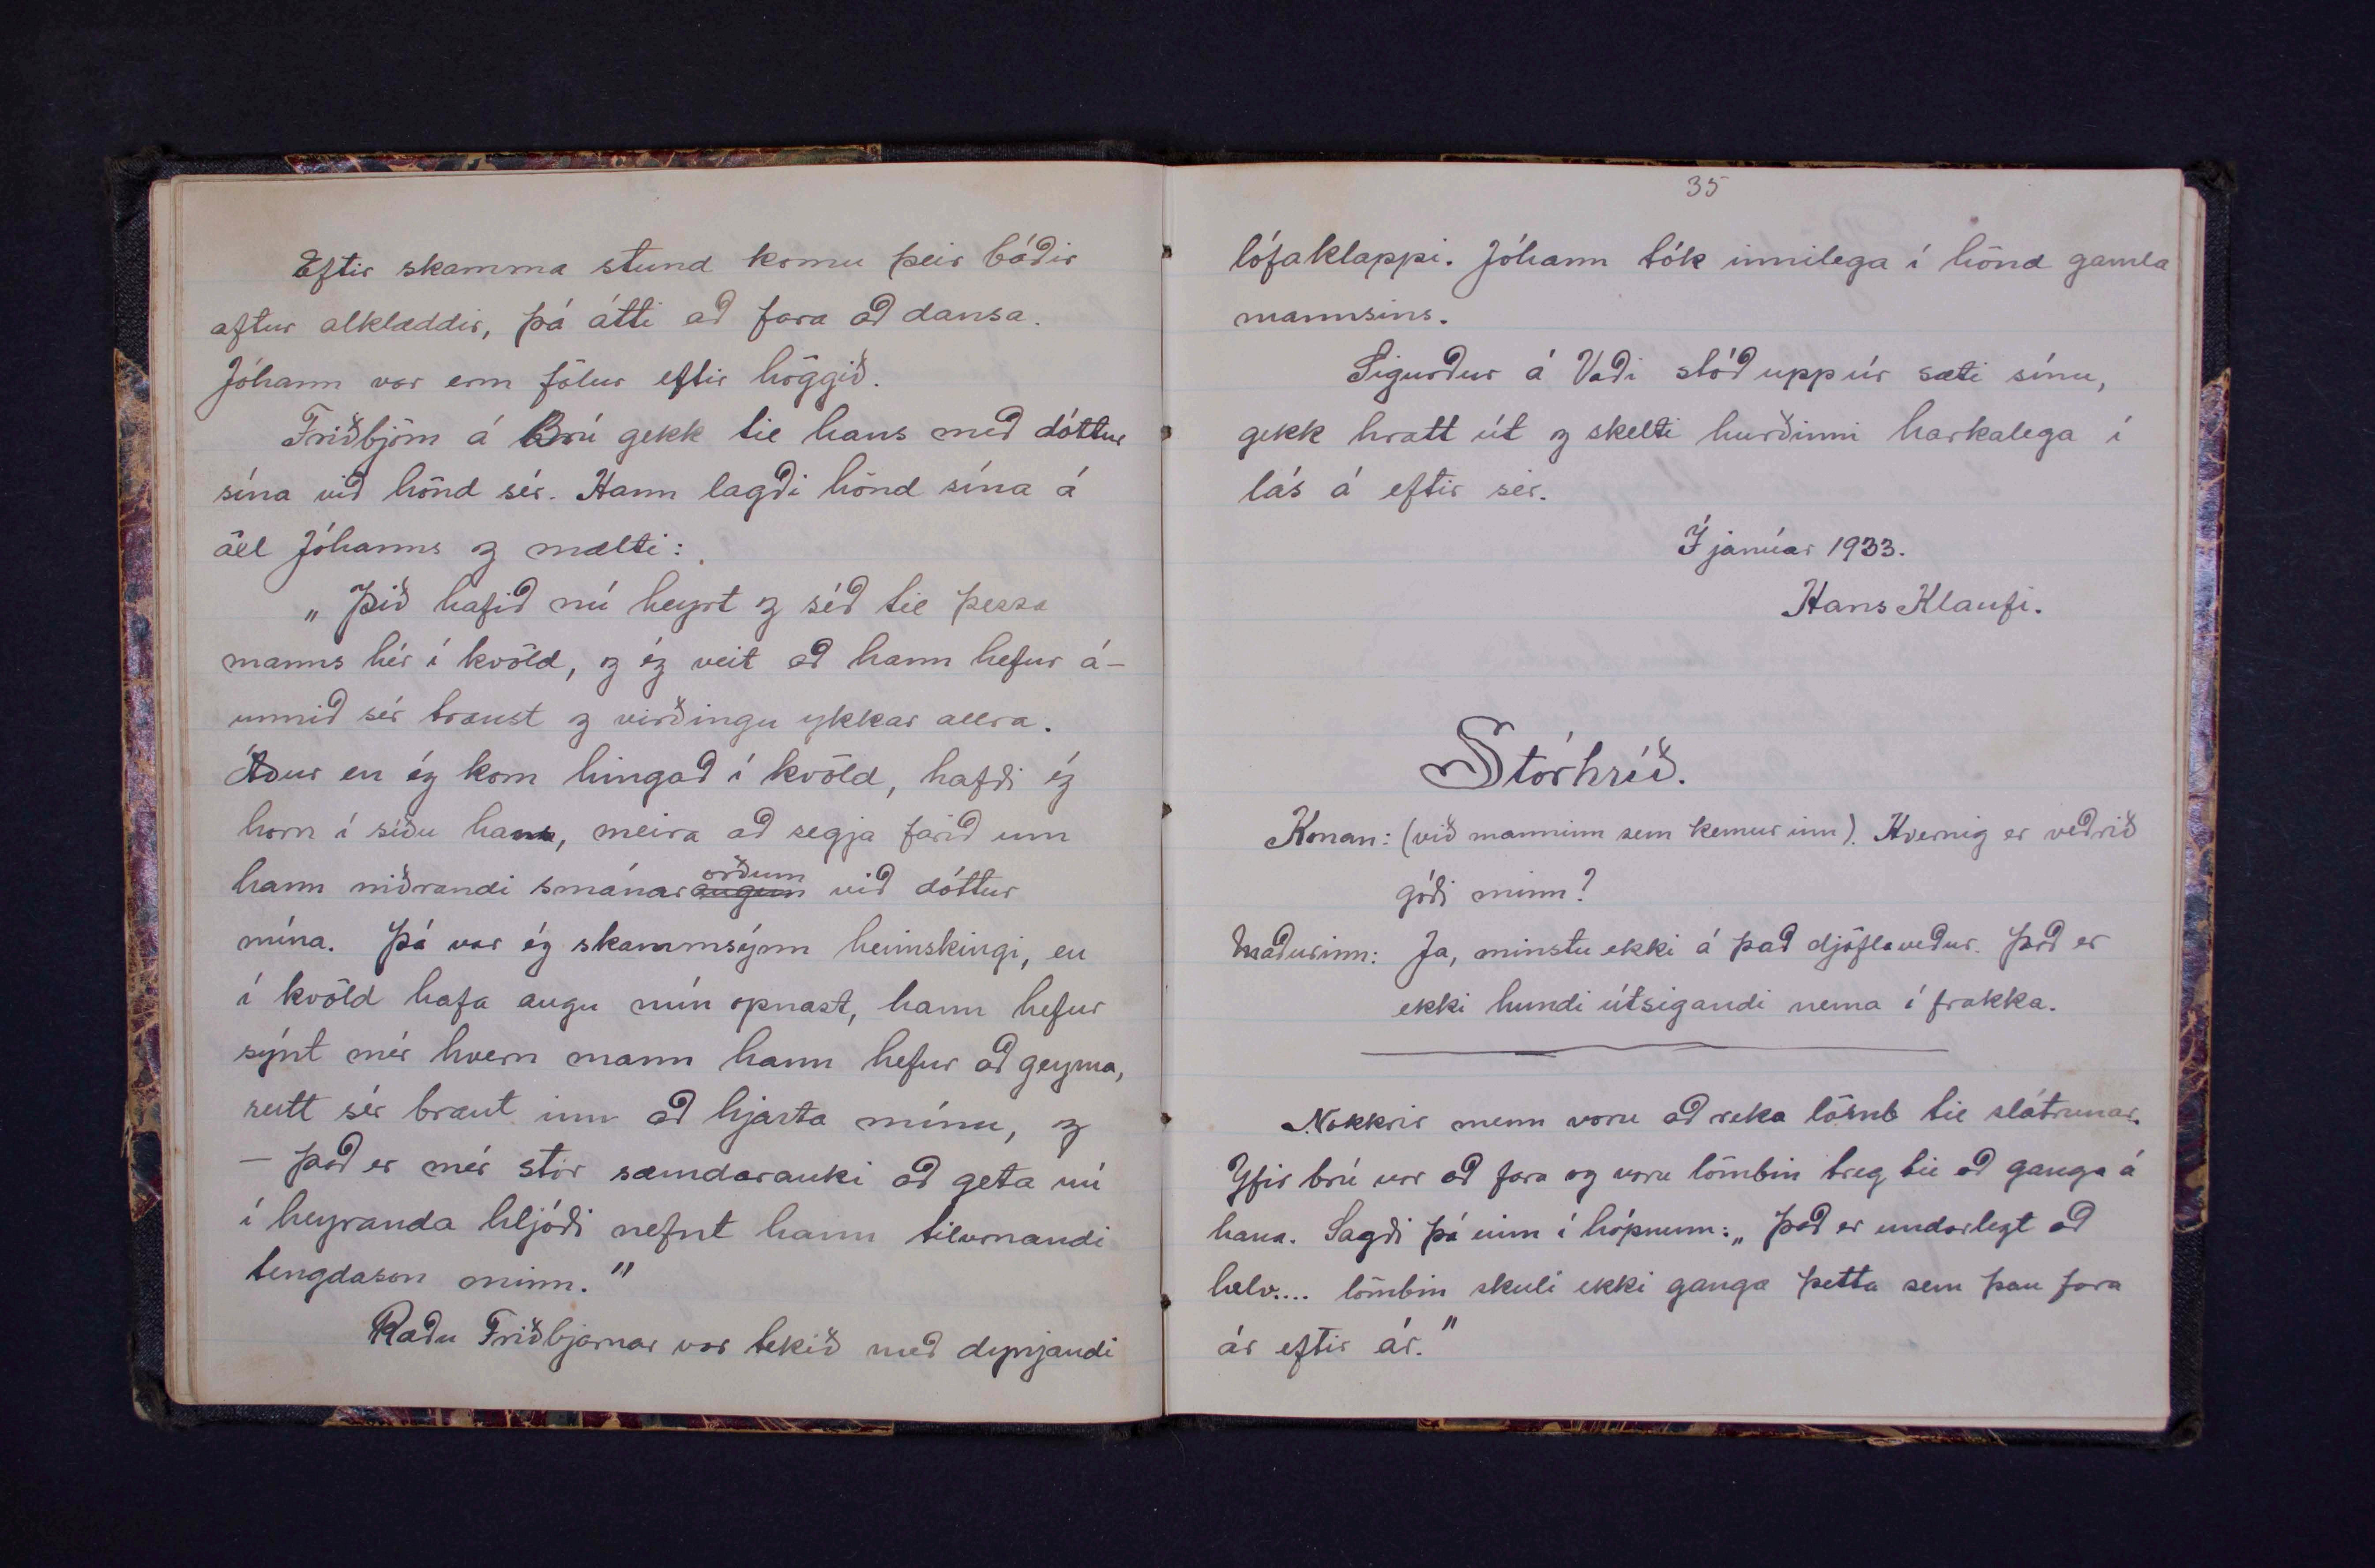 Eftir skamma stund komu þeir báðir
aftur alklæddir, þá átti að fara að dansa.
Jóhann var enn fölur eftir höggið.
Friðbjörn á Brú gekk til hans með dóttur
sína við hönd sér. Hann lagði hönd sína á
öxl Jóhanns og mælti:
„Þið hafið nú heyrt og séð til þessa
manns hér í kvöld, og ég veit að hann hefur á-
unnið sér traust og virðingu ykkar allra.
Áður en ég kom hingað í kvöld, hafði ég
horn í síðu hans, meira að segja farið um
orðum
hann niðrandi smánar augum við dóttur
mína. Þá var ég skammsýnn heimskingi, en
í kvöld hafa augu mín opnast, hann hefur
sýnt mér hvern mann hann hefur að geyma,
rutt sér braut inn að hjarta mínu, og
– það er mér stór sæmdarauki að geta nú
í heyranda hljóði nefnt hann tilvonandi
tengdason minn."
Ræðu Friðbjarnar var tekið með dynjandi
35
lófaklappi. Jóhann tók innilega í hönd gamla
mannsins.
Sigurður á Vaði stóð upp úr sæti sínu,
gekk hratt út og skelti hurðinni harkalega í
lás á eftir sér.
Í janúar 1933.
Hans Klaufi.
Stórhríð.
Konan: (við manninn sem kemur inn). Hvernig er veðrið
góði minn?
Maðurinn: Ja, minstu ekki á það djöflaveður. Það er
ekki hundi útsigandi nema í frakka.
Nokkrir menn voru að reka lömb til slátrunar.
Yfir brú var að fara og voru lömbin treg til að ganga á
hana. Sagði þá einn í hópnum: „Það er undarlegt að
helv.... lömbin skuli ekki ganga þetta sem þau fara
ár eftir ár."